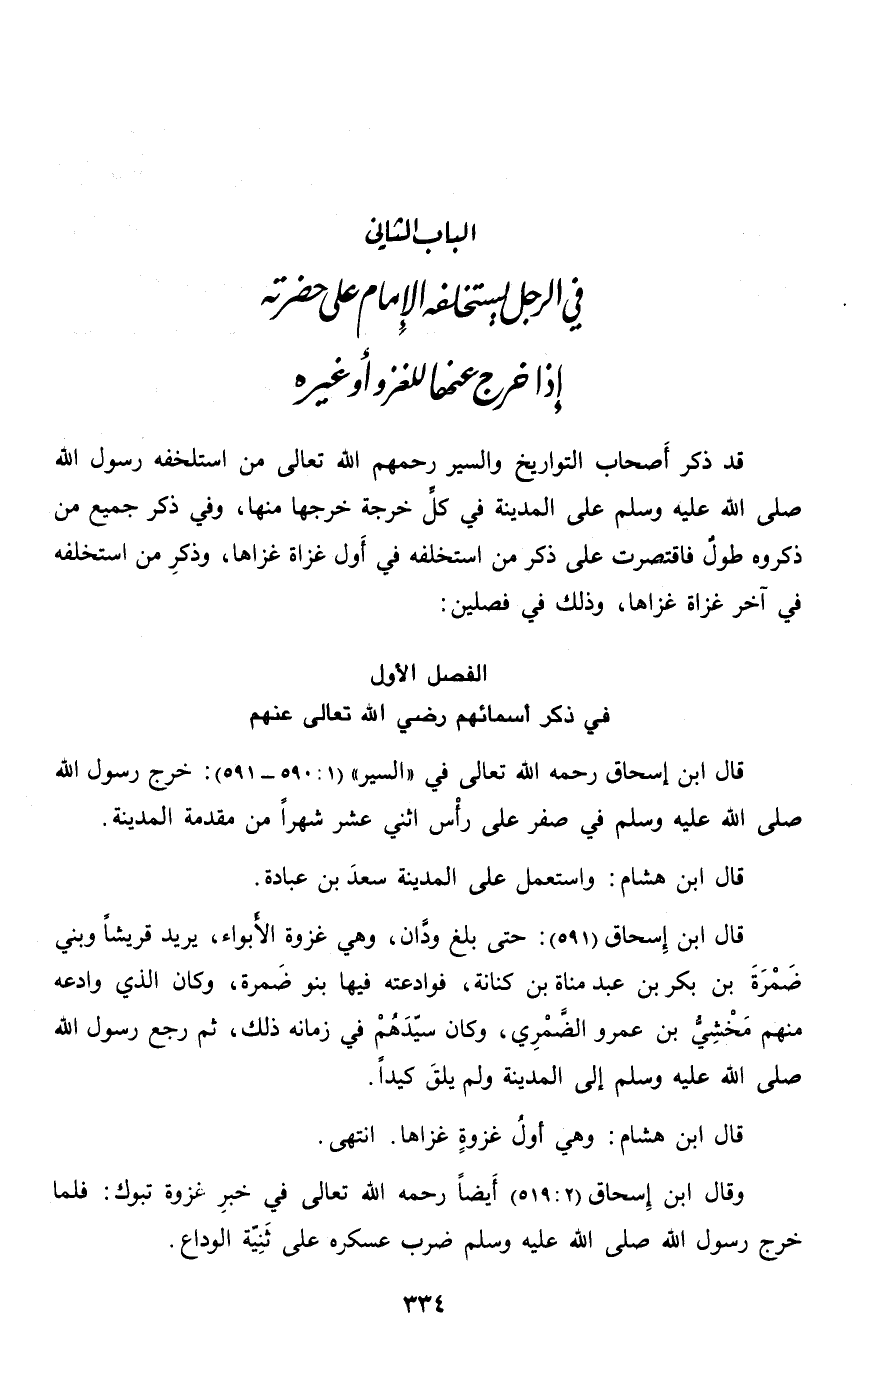 الباب الثاني
في الرجل يستخلفه الإمام على حضرته
إذا خرج عنها للغزو أو غيره
قد ذكر أَصحاب التواريخ والسير رحمهم الله تعالى من استلخفه رسول الله
صلى الله عليه وسلم على المدينة في كلِّ خرجة خرجها منها، وفي ذكر جميع من
ذكروه طولٌ فاقتصرت على ذكر من استخلفه في أَول غزاة غزاها، وذكرِ من استخلفه
في آخر غزاة غزاها، وذلك في فصلين:
الفصل الأول
في ذكر أسمائهم رضي الله تعالى عنهم
قال ابن إسحاق رحمه الله تعالى في «السير» (١: ٥٩٠ – ٥٩١): خرج رسول الله
صلى الله عليه وسلم في صفر على رأْس اثني عشر شهراً من مقدمة المدينة.
قال ابن هشام: واستعمل على المدينة سعدَ بن عبادة.
قال ابن إِسحاق (٥٩١): حتى بلغ ودَّان، وهي غزوة الأَبواء، يريد قريشاً وبني
ضَمْرَةَ بن بكر بن عبد مناة بن كنانة، فوادعته فيها بنو ضَمرة، وكان الذي وادعه
منهم مَخْشِيُّ بن عمرو الضَّمْرِي، وكان سيّدَهُمْ في زمانه ذلك، ثم رجع رسول الله
صلى الله عليه وسلم إلى المدينة ولم يلقَ كيداً.
قال ابن هشام: وهي أولُ غزوةٍ غزاها. انتهى.
وقال ابن إِسحاق (٢: ٥١٩) أَيضاً رحمه الله تعالى في خبرِ غزوة تبوك: فلما
خرج رسول الله صلى الله عليه وسلم ضرب عسكره على ثَنِيّة الوداع.
٣٣٤